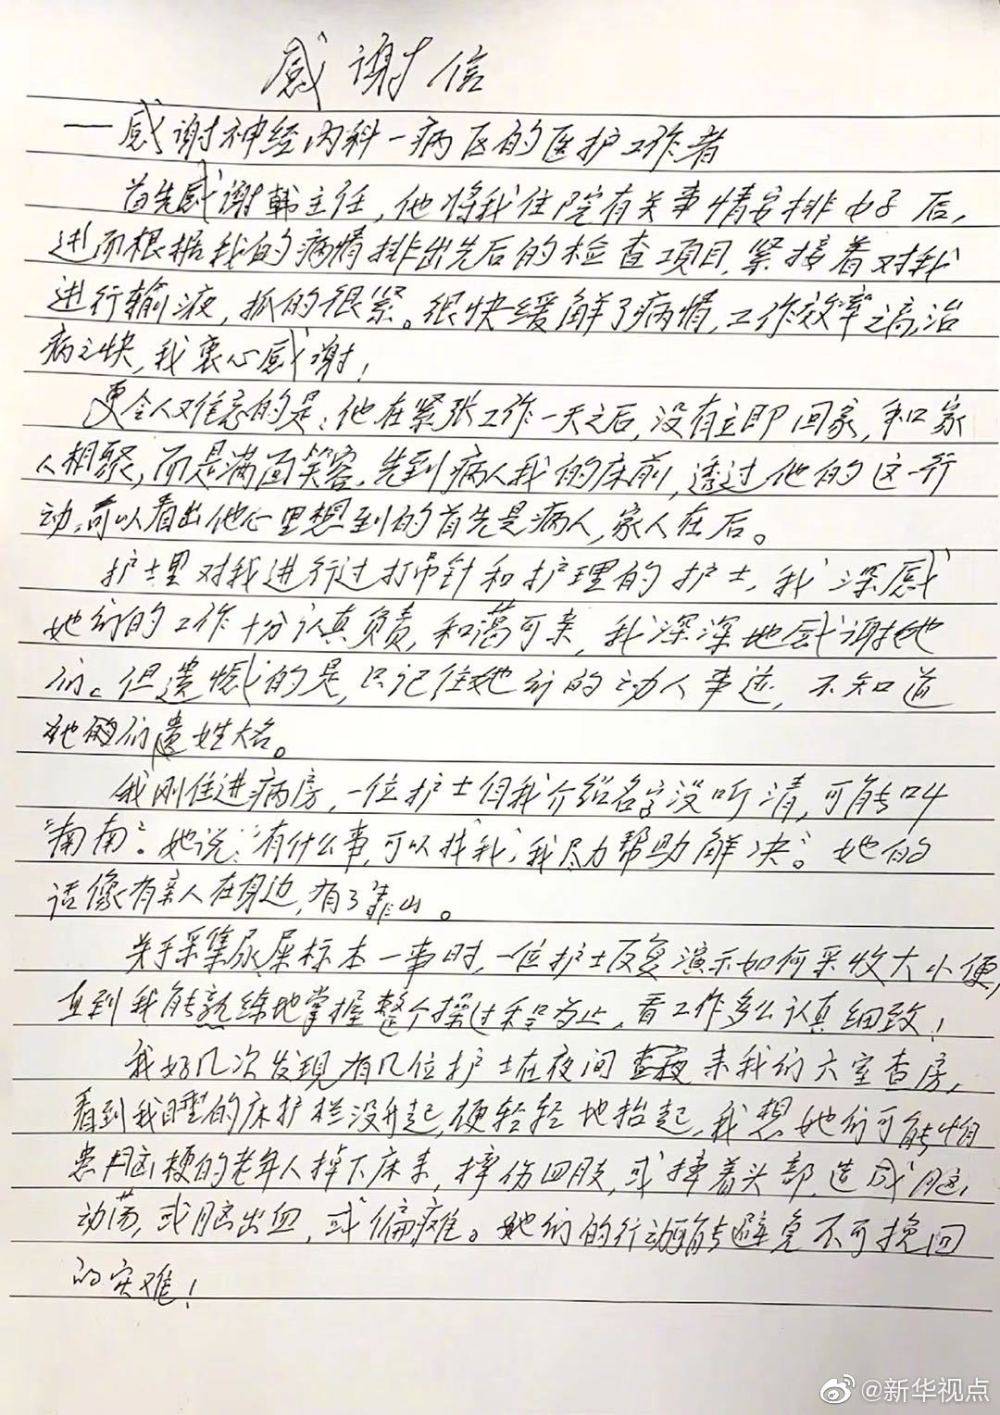 感谢信
——感谢神经内科一病区的医护工作者
首先感谢韩主任，他将我住院有关事情安排好后，
进而根据我的病情排出先后的检查项目，紧接着对我
进行输液，抓的很紧。很快缓解了病情，工作效率之高，治
病之快，我衷心感谢！
更令人难忘的是：他在紧张工作一天之后，没有立即回家，和家
人相聚，而是满面笑容，先到病人我的床前，透过他的这一行
动，可以看出他心里想到的首先是病人，家人在后。
护士里对我进行过打吊针和护理的护士，我深感
她们的工作十分认真负责，和蔼可亲，我深深地感谢她
们。但遗憾的是，只记住她们的动人事迹，不知道
她们贵姓大名。
我刚住进病房，一位护士自我介绍名字没听清，可能叫
“南南”。她说：“有什么事，可以找我，我尽力帮助解决”。她的
话像有亲人在身边，有了靠山。
关于采集尿屎标本一事时，一位护士反复演示如何采收大小便，
直到我能熟练地掌握整个操过程为止，看工作多么认真细致！
我好几次发现有几位护士在夜间查夜来我们六室查房，
看到我睡的床护栏没升起，便轻轻地抬起，我想她们可能怕
患脑梗的老年人掉下床来，摔伤四肢，或摔着头部，造成脑
动荡，或脑出血，或偏瘫。她们的行动能避免不可挽回
的灾难！
@新华视点